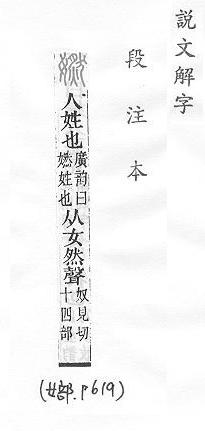 説文解字
段注本
㜣
人姓也
廣韵曰
㜣姓也
从女然聲
奴見切
十四部
(女部.P619)